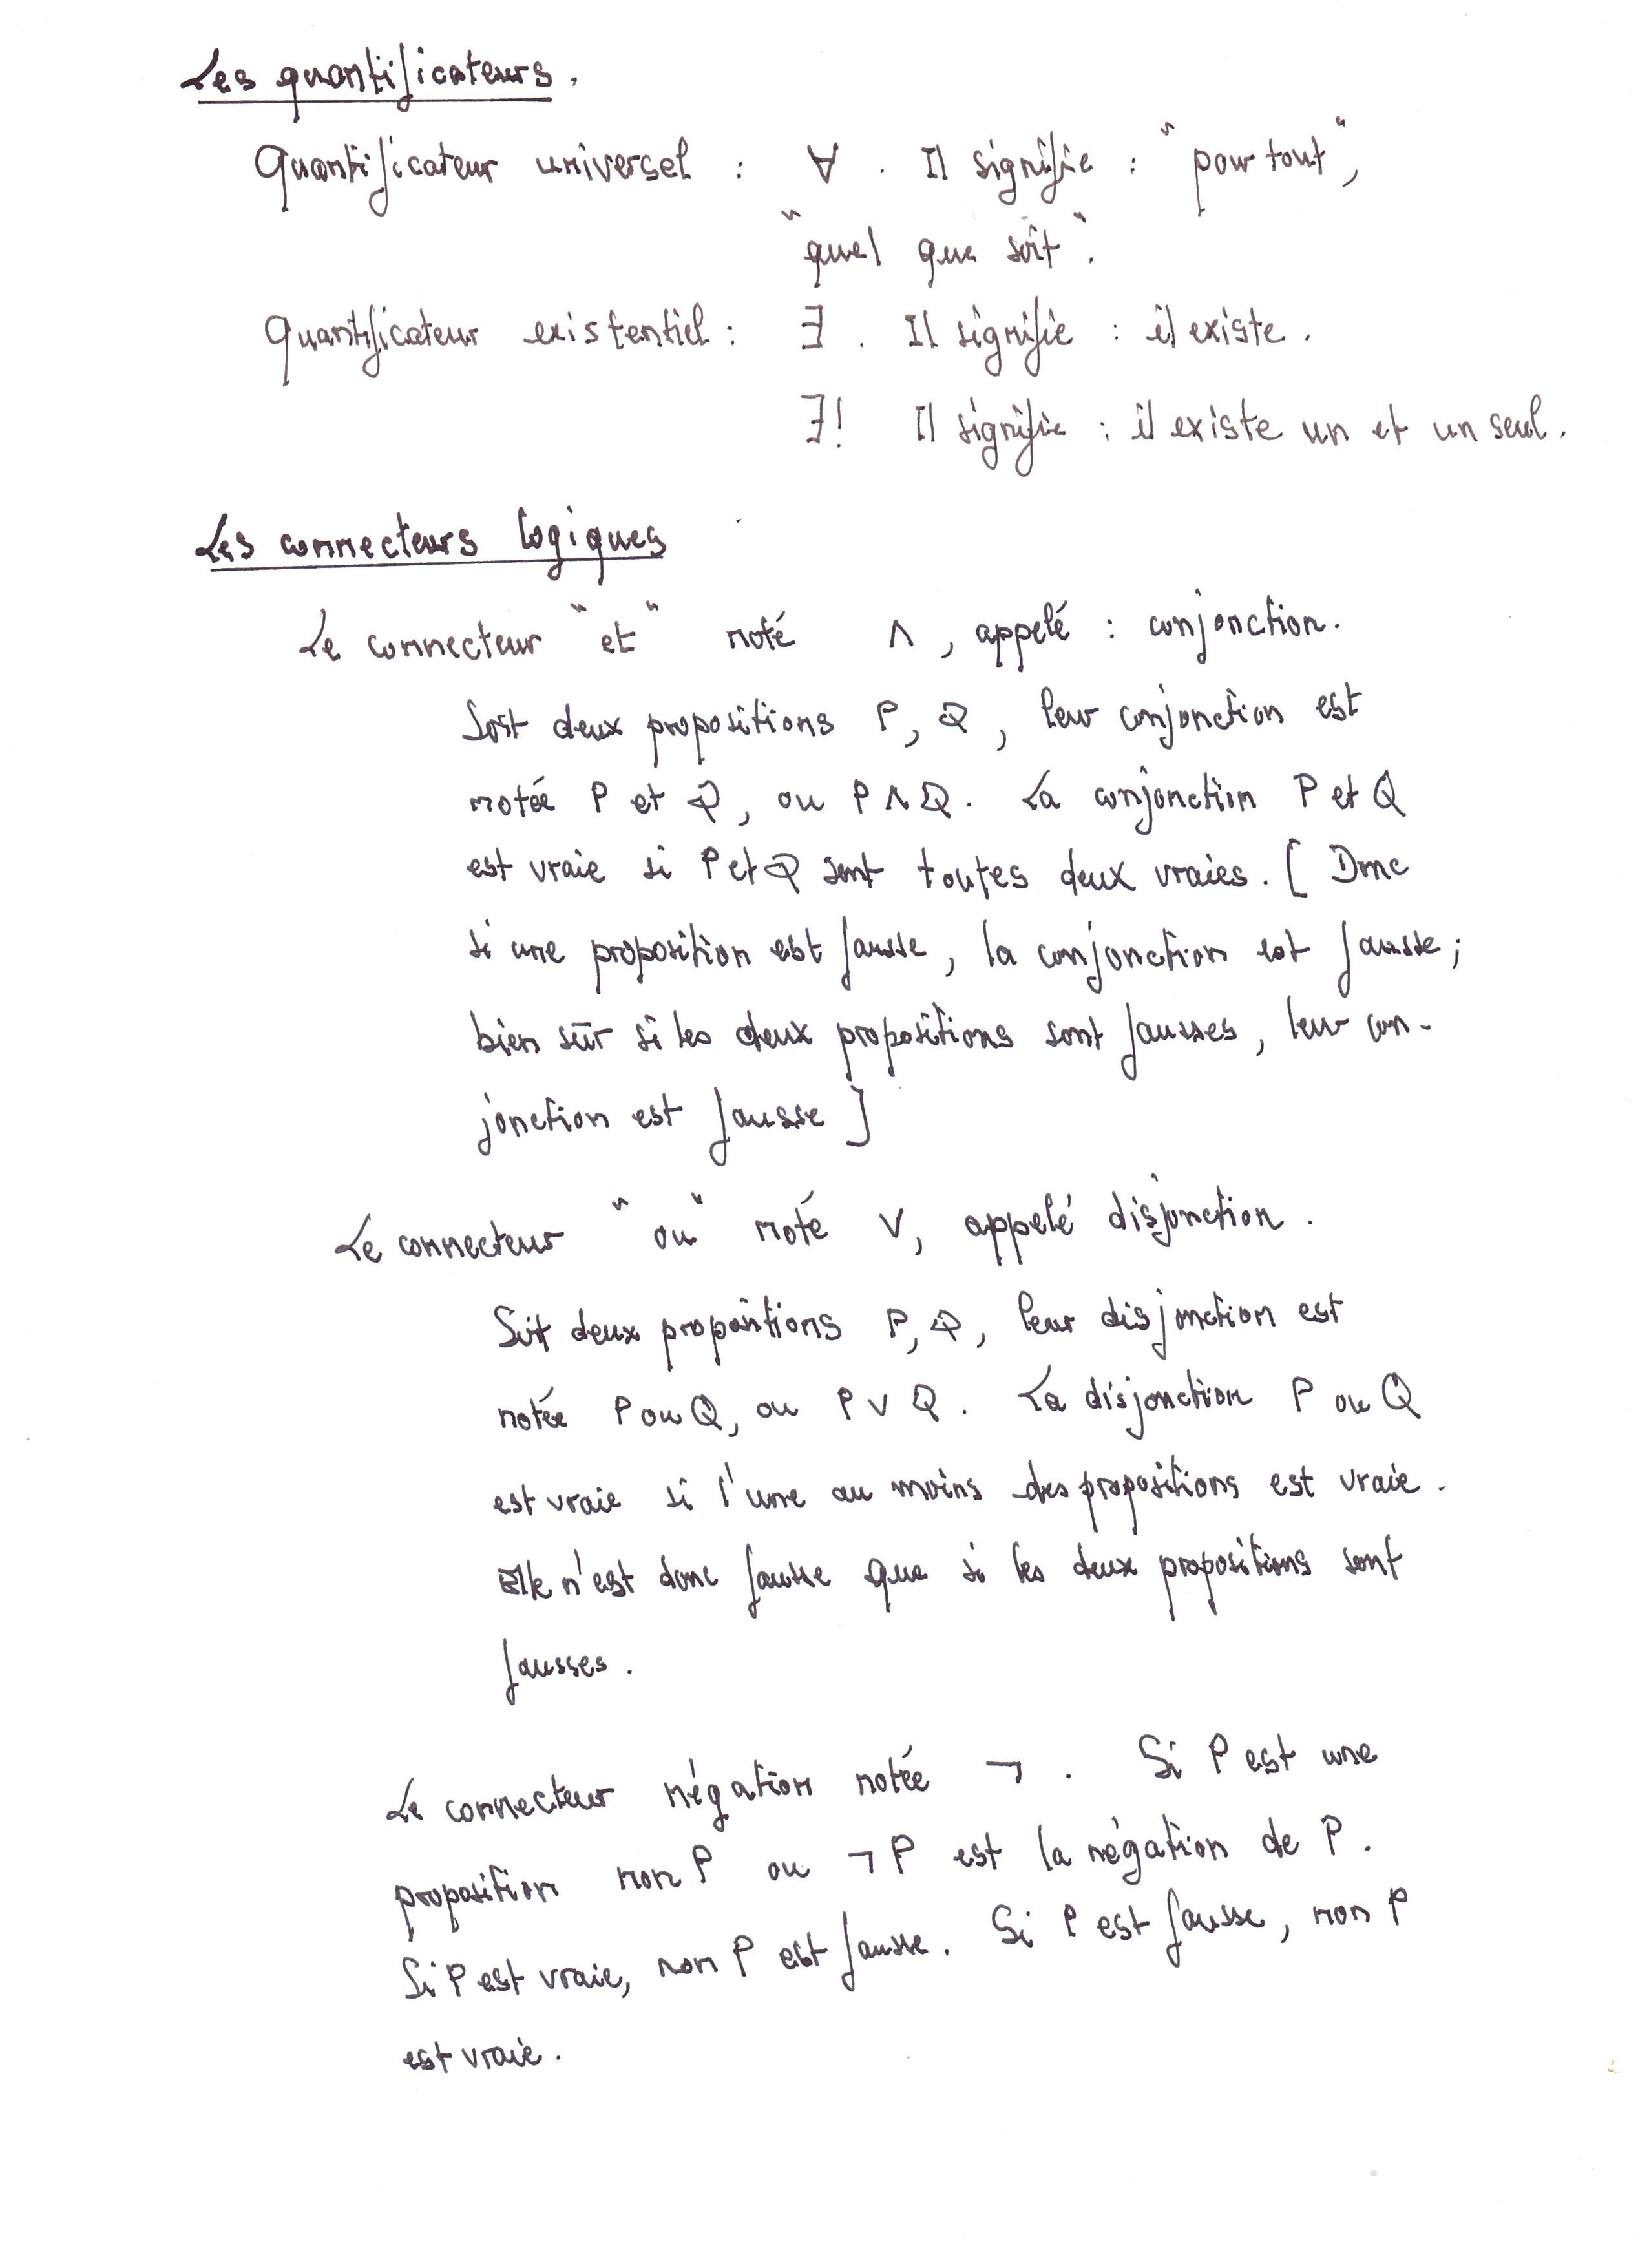 Les quantificateurs.
Quantificateur universel : ∀ . Il signifie : "pour tout",
"quel que soit".
Quantificateur existentiel : ∃ . Il signifie : il existe.
∃! Il signifie : il existe un et un seul.
Les connecteurs logiques
Le connecteur "et" noté ∧, appelé : conjonction.
Soit deux propositions P, Q, leur conjonction est
notée P et Q, ou P ∧ Q. La conjonction P et Q
est vraie si P et Q sont toutes deux vraies. [ Donc
si une proposition est fausse, la conjonction est fausse ;
bien sûr si les deux propositions sont fausses, leur con-
jonction est fausse ]
Le connecteur "ou" noté ∨, appelé disjonction.
Soit deux propositions P, Q, leur disjonction est
notée P ou Q, ou P ∨ Q. La disjonction P ou Q
est vraie si l'une au moins des propositions est vraie.
Elle n'est donc fausse que si les deux propositions sont
fausses.
Le connecteur négation notée ¬ . Si P est une
proposition non P ou ¬ P est la négation de P.
Si P est vraie, non P est fausse. Si P est fausse, non P
est vraie.